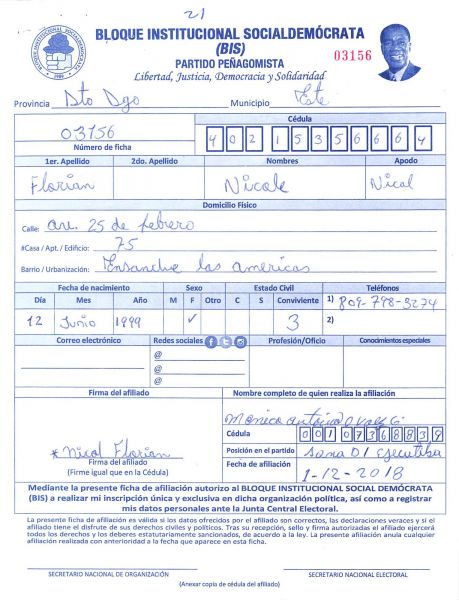 21
BLOQUE INSTITUCIONAL SOCIALDEMÓCRATA
(BIS)
PARTIDO PEÑAGOMISTA
Libertad, Justicia, Democracia y Solidaridad
03156
Provincia Dto Dgo Municipio Este
03156
Número de ficha
Cédula
40215356664
1er. Apellido 2do. Apellido Nombres Apodo
Florian Nicole Nical
Domicilio Físico
Calle: av. 25 de febrero
#Casa / Apt. / Edificio: 75
Barrio / Urbanización: Ensanche las americas
Fecha de nacimiento Sexo Estado Civil Teléfonos
Día Mes Año M F Otro C S Conviviente 1) 809-798-3274
12 Junio 1999 ✓ 3 2)
Correo electrónico Redes sociales Profesión/Oficio Conocimientos especiales
@
@
@
Firma del afiliado Nombre completo de quien realiza la afiliación
Monica
Cédula 00107368839
*Nicol Florian
Firma del afiliado
(Firme igual que en la Cédula)
Posición en el partido
Fecha de afiliación 1-12-2018
Mediante la presente ficha de afiliación autorizo al BLOQUE INSTITUCIONAL SOCIAL DEMÓCRATA
(BIS) a realizar mi inscripción única y exclusiva en dicha organización política, así como a registrar
mis datos personales ante la Junta Central Electoral.
La presente ficha de afiliación es válida si los datos ofrecidos por el afiliado son correctos, las declaraciones veraces y si el
afiliado tiene el disfrute de sus derechos civiles y políticos. Tras su recepción, sello y firma autorizadas el afiliado ejercerá
todos los derechos y los deberes estatutariamente sancionados, de acuerdo a la ley. La presente afiliación anula cualquier
afiliación realizada con anterioridad a la fecha que aparece en esta ficha.
SECRETARIO NACIONAL DE ORGANIZACIÓN SECRETARIO NACIONAL ELECTORAL
(Anexar copia de cédula del afiliado)